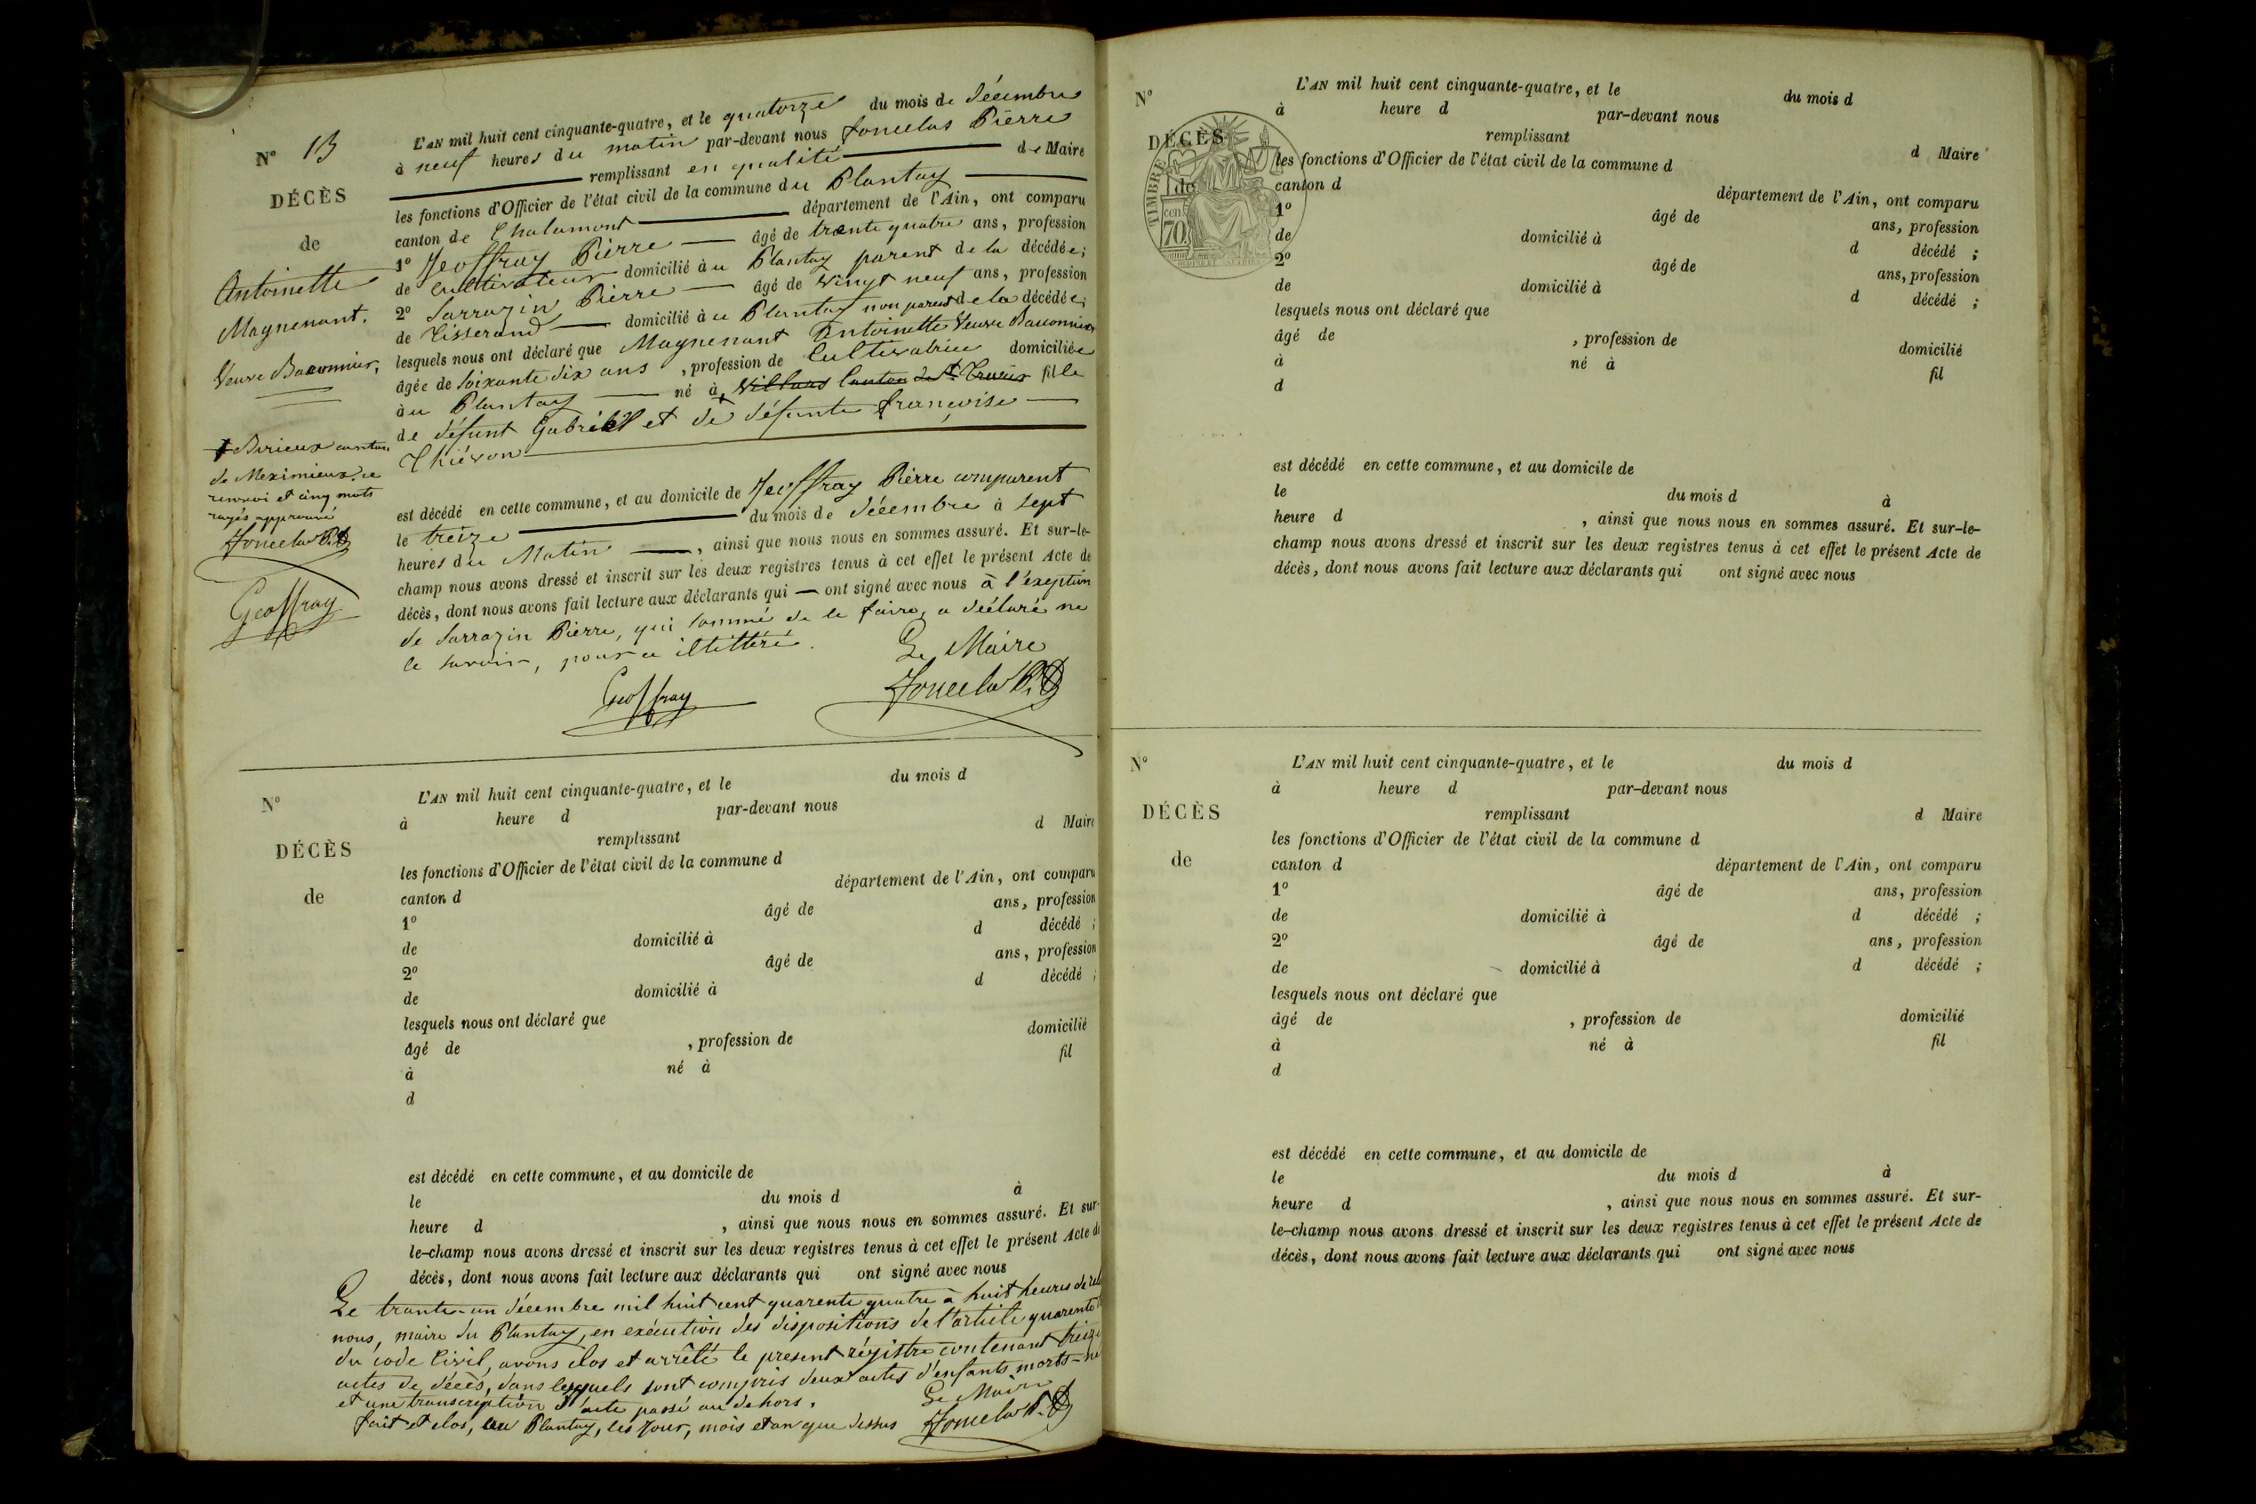 N° 13
DÉCÈS
de
Antoinette
Magnenant.
Veuve Baconnier,
L'AN mil huit cent cinquante-quatre, et le quatorze du mois de décembre
à neuf heures du matin par-devant nous Joncelas Pierre
remplissant en qualité de Maire
les fonctions d'Officier de l'état civil de la commune du Plantay
canton de Chalamont département de l'Ain, ont comparu
1° Geoffray Pierre âgé de trente quatre ans, profession
de cultivateur domicilié au Plantay parent de la décédée;
2° Sarrazin Pierre âgé de vingt neuf ans, profession
de Tisserand domicilié au Plantay non parent de la décédée;
lesquels nous ont déclaré que Magnenant Antoinette Veuve Baconnier
âgée de soixante dix ans, profession de Cultivatrice domiciliée
au Plantay né à Villars Canton de St Trivier fille
de défunt Gabriel et de défunte françoise
Thiévon
+ Birieux canton
de Meximieux. ce
renvoi et cinq mots
rayés approuvé
Geoffray
est décédé en cette commune, et au domicile de Geoffray Pierre comparent
le treize du mois de décembre à sept
heures du Matin, ainsi que nous nous en sommes assuré. Et sur-le-
champ nous avons dressé et inscrit sur les deux registres tenus à cet effet le présent Acte de
décès, dont nous avons fait lecture aux déclarants qui ont signé avec nous à l'exeption
de Sarrazin Pierre, qui sommé de le faire, a déclaré ne
le savoir, pour ce illettéré.
Le Maire
Geoffray
N°
DÉCÈS
de
L'AN mil huit cent cinquante-quatre, et le du mois d
à heure d par-devant nous
remplissant d Maire
les fonctions d'Officier de l'état civil de la commune d
canton d département de l'Ain, ont comparu
1° âgé de ans, profession
de domicilié à d décédé ;
2° âgé de ans, profession
de domicilié à d décédé ;
lesquels nous ont déclaré que
âgé de , profession de domicilié
à né à fil
d
est décédé en cette commune, et au domicile de
le du mois d à
heure d , ainsi que nous nous en sommes assuré. Et sur-
le-champ nous avons dressé et inscrit sur les deux registres tenus à cet effet le présent Acte de
décès, dont nous avons fait lecture aux déclarants qui ont signé avec nous
Le trante-un décembre mil huit cent quarente quatre à huit heures de
nous, maire du Plantay, en exécution des dispositions de l'article quarente
du code Civil, avons clos et arrêté le present régistre contenant treize
actes de décès, dans lesquels sont compris deux actes d'enfants morts-né
et une transcription d'acte passé au dehors.
Le Maire
fait et clos, au Plantay, les jour, mois et an que dessus
N°
DÉCÈS
de
TIMBRE
cen
70
L'AN mil huit cent cinquante-quatre, et le du mois d
à heure d par-devant nous
remplissant d Maire
les fonctions d'Officier de l'état civil de la commune d
canton d département de l'Ain, ont comparu
1° âgé de ans, profession
de domicilié à d décédé ;
2° âgé de ans, profession
de domicilié à d décédé ;
lesquels nous ont déclaré que
âgé de , profession de domicilié
à né à fil
d
est décédé en cette commune, et au domicile de
le du mois d à
heure d , ainsi que nous nous en sommes assuré. Et sur-le-
champ nous avons dressé et inscrit sur les deux registres tenus à cet effet le présent Acte de
décès, dont nous avons fait lecture aux déclarants qui ont signé avec nous
N°
DÉCÈS
de
L'AN mil huit cent cinquante-quatre, et le du mois d
à heure d par-devant nous
remplissant d Maire
les fonctions d'Officier de l'état civil de la commune d
canton d département de l'Ain, ont comparu
1° âgé de ans, profession
de domicilié à d décédé ;
2° âgé de ans, profession
de domicilié à d décédé ;
lesquels nous ont déclaré que
âgé de , profession de domicilié
à né à fil
d
est décédé en cette commune, et au domicile de
le du mois d à
heure d , ainsi que nous nous en sommes assuré. Et sur-
le-champ nous avons dressé et inscrit sur les deux registres tenus à cet effet le présent Acte de
décès, dont nous avons fait lecture aux déclarants qui ont signé avec nous